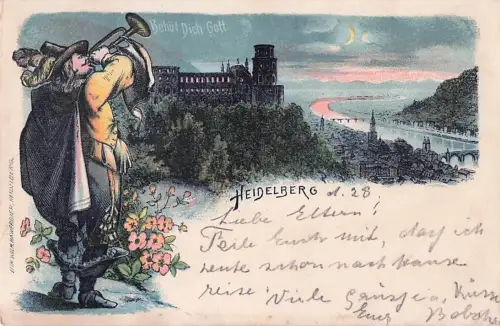 Behüt Dich Gott
HEIDELBERG d. 28
Liebe Eltern!
Teile Euch mit, daß ich
heute schon nach Hause
reise! Viele Grüsse u. Küsse
Euer